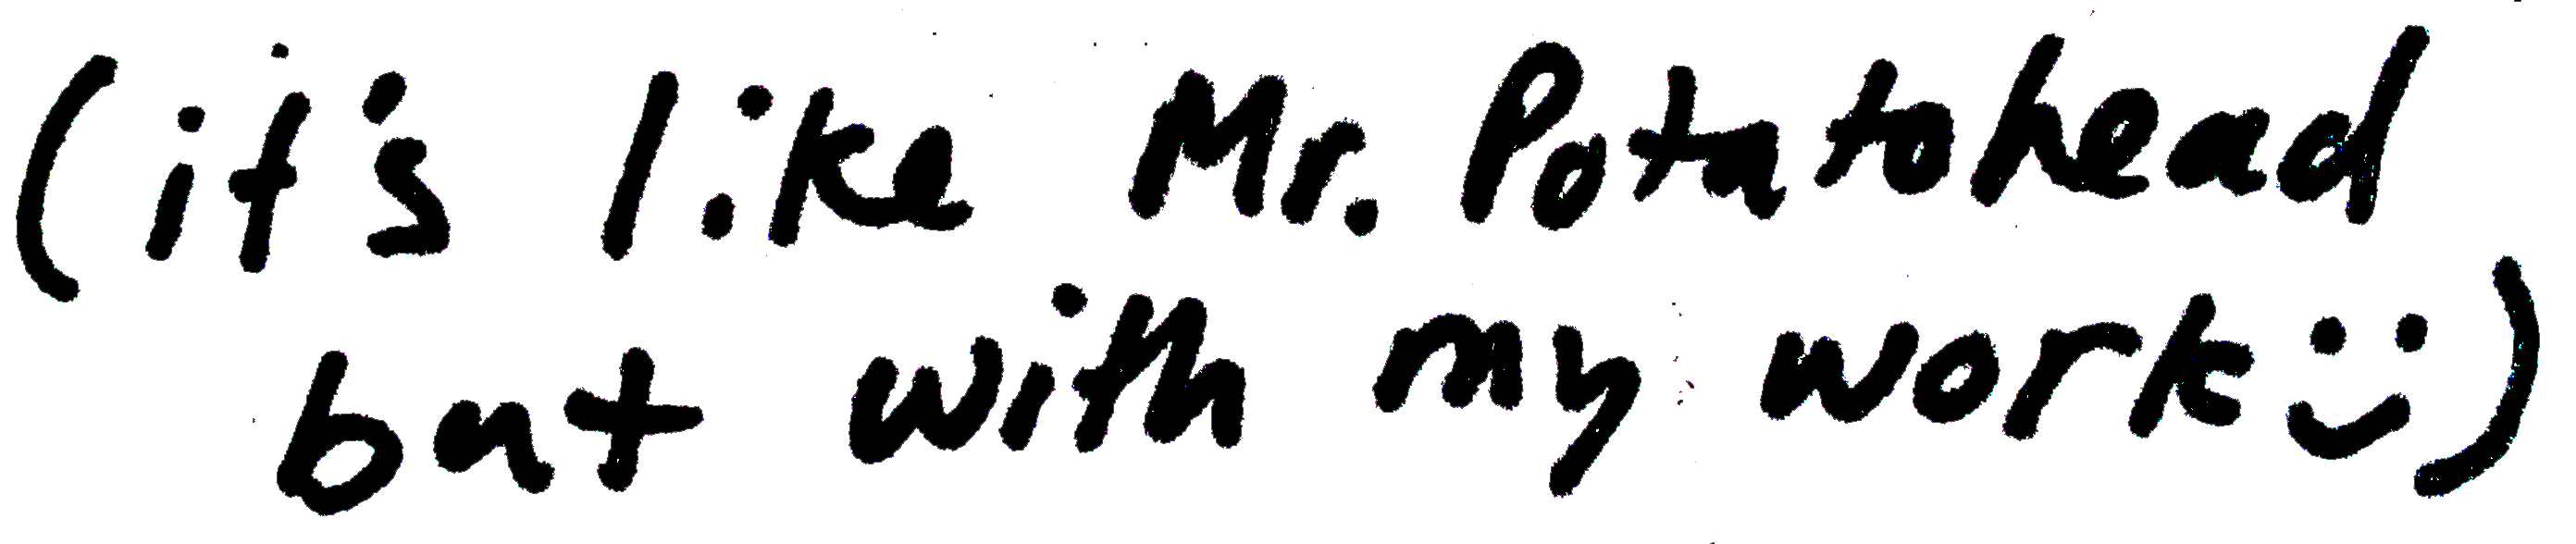 (it's like Mr. Potatohead
but with my work :))